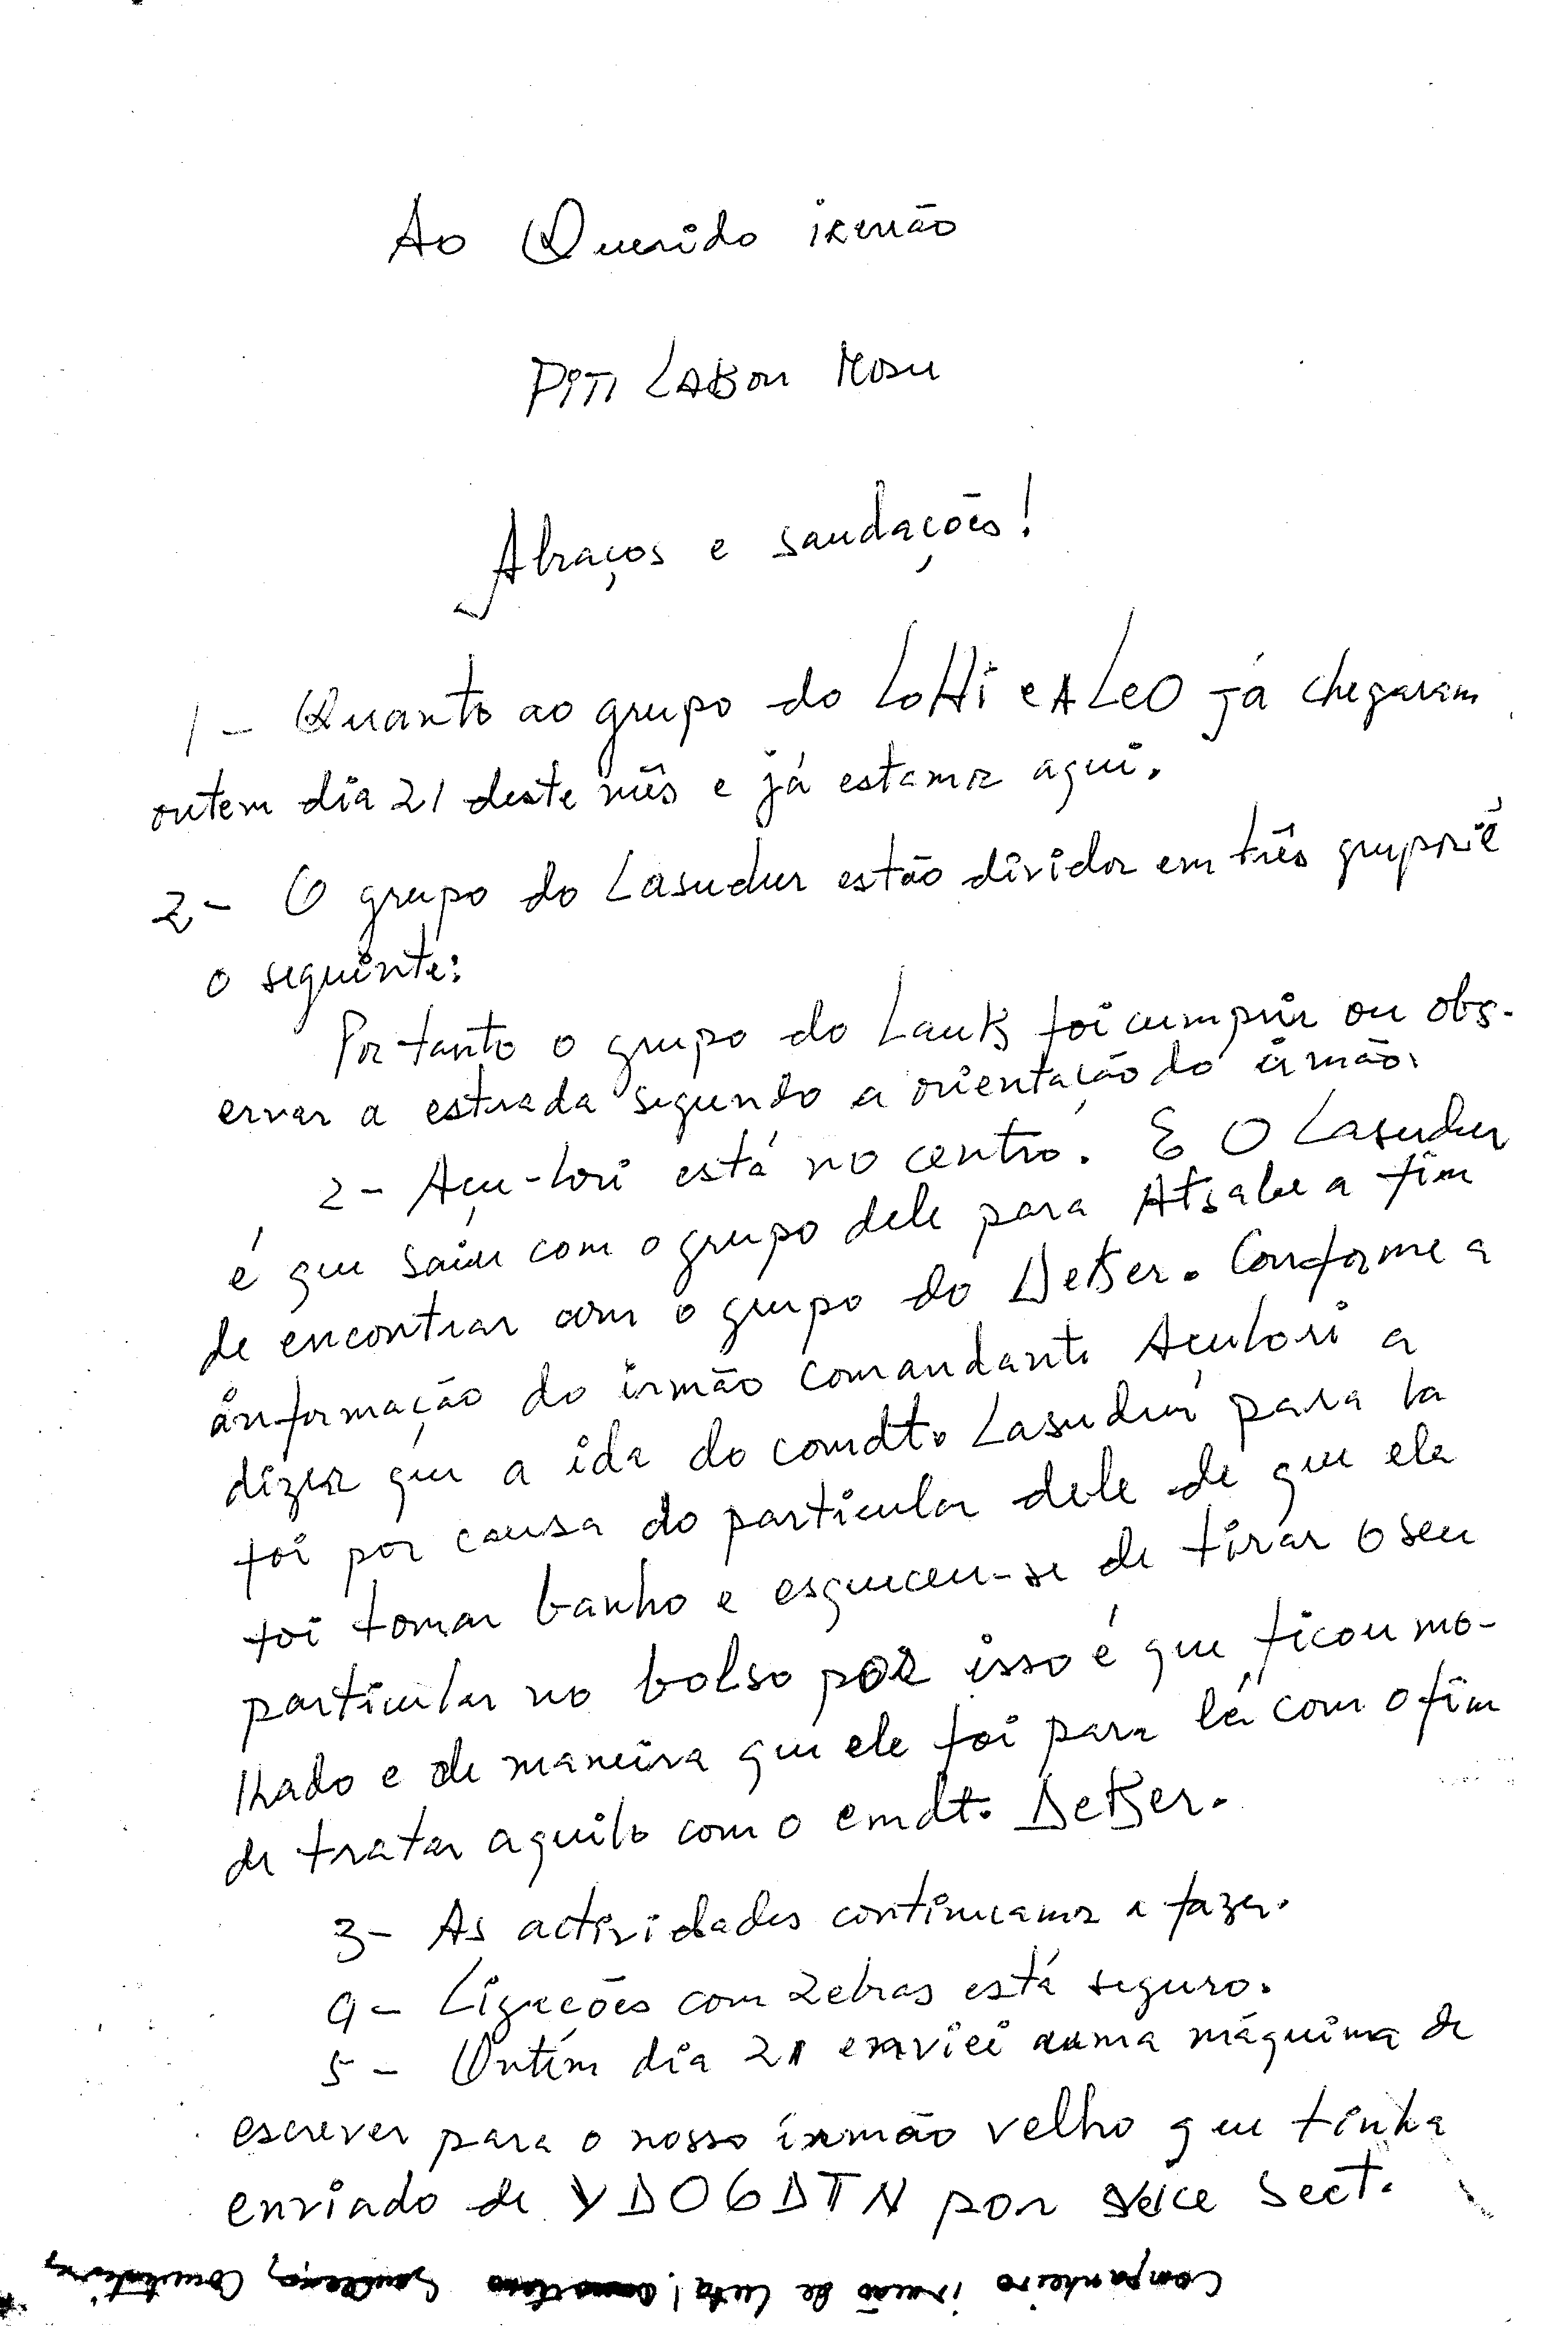 Ao Querido irmão
Piti Labon Mosu
Abraços e saudações!
1- Quanto ao grupo do LoHi e ALeO já chegaram
ontem dia 21 deste mês e já estamos aqui.
2- O grupo do Lasudur estão dividos em três grupos é
o seguinte:
Portanto o grupo do LauB foi cumprir ou obs-
ervar a estrada segundo a orientação do irmão.
2- Açu-lori está no centro. E O Lasudur
é que saiu com o grupo dele para Atsabe a fim
de encontrar com o grupo do DeBer. Conforme a
informação do irmão comandante Açulori a
dizer que a ida do comdt. Lasudur para la
foi por causa do particular dele de que ele
foi tomar banho e esqueceu-se de tirar o seu
particular no bolso por isso é que ficou mo-
lhado e de maneira que ele foi para lá com o fim
de tratar aquilo com o cmdt. DeBer.
3- As actividades continuamos a fazer.
4- Ligações com Zebras está seguro.
5- Ontem dia 21 enviei numa máquina de
escrever para o nosso irmão velho que tinha
enviado de YDOGDTN por Vice Sect.
Companheiro irmão de Luta!